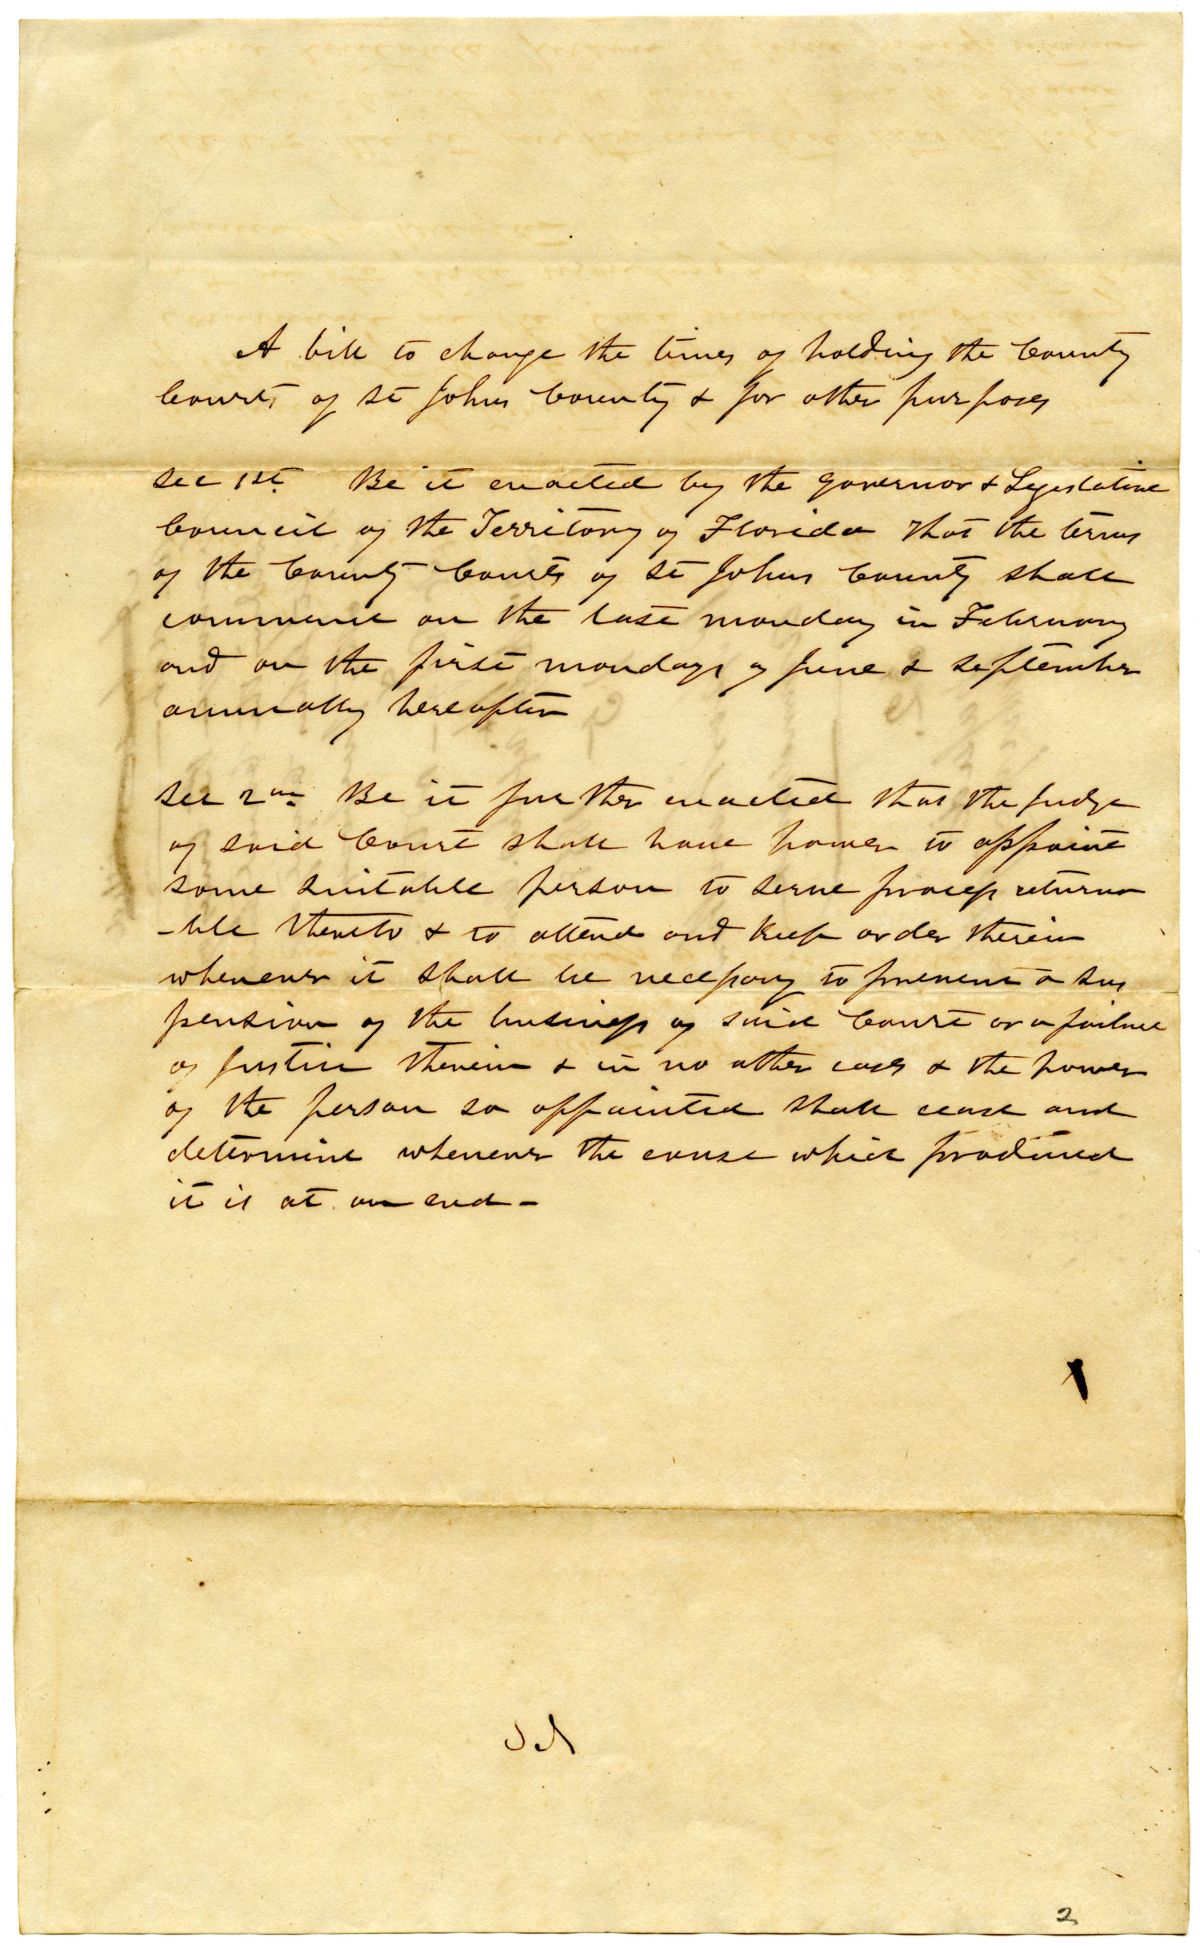 A bill to change the times of holding the County
Courts of St Johns County & for other purposes
Sec 1st. Be it enacted by the Governor & Legislative
Council of the Territory of Florida That the terms
of the County Courts of St Johns County shall
commence on the last monday in February
and on the first mondays of June & September
annually hereafter
Sec 2nd. Be it further enacted that the Judge
of said Court shall have power to appoint
some suitable person to serve process returna
-ble thereto & to attend and keep order therein
whenever it shall be necessary to prevent a sus
pension of the business of said Court or a failure
of Justice therein & in no other cases & the power
of the person so appointed shall cease and
determine whenever the cause which produced
it is at an end -
2